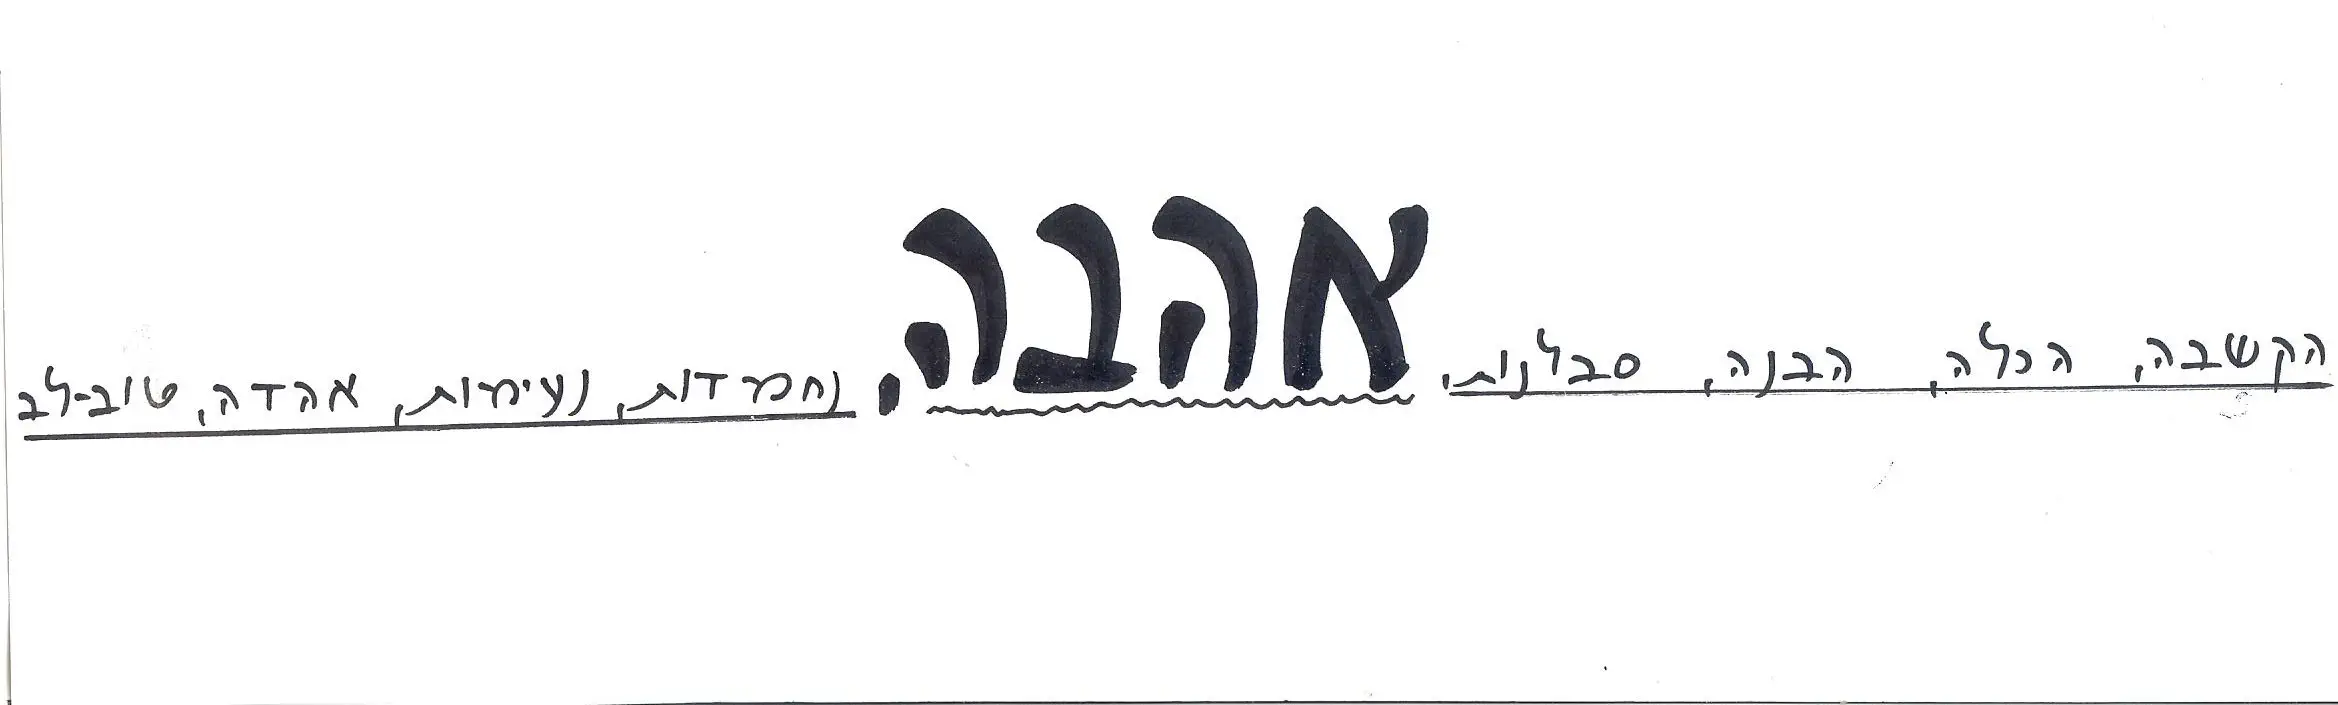 הקשבה, הכלה, הבנה, סבלנות, אהבה, נחמדות, נעימות, אהדה, טוב-לב